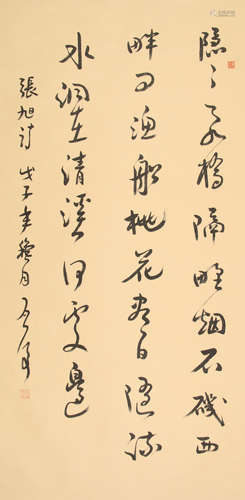 隐々飞橋隔野烟石磯西
畔问渔船桃花尽日随流
水洞在清溪何處邊
張旭诗 戊子年 月